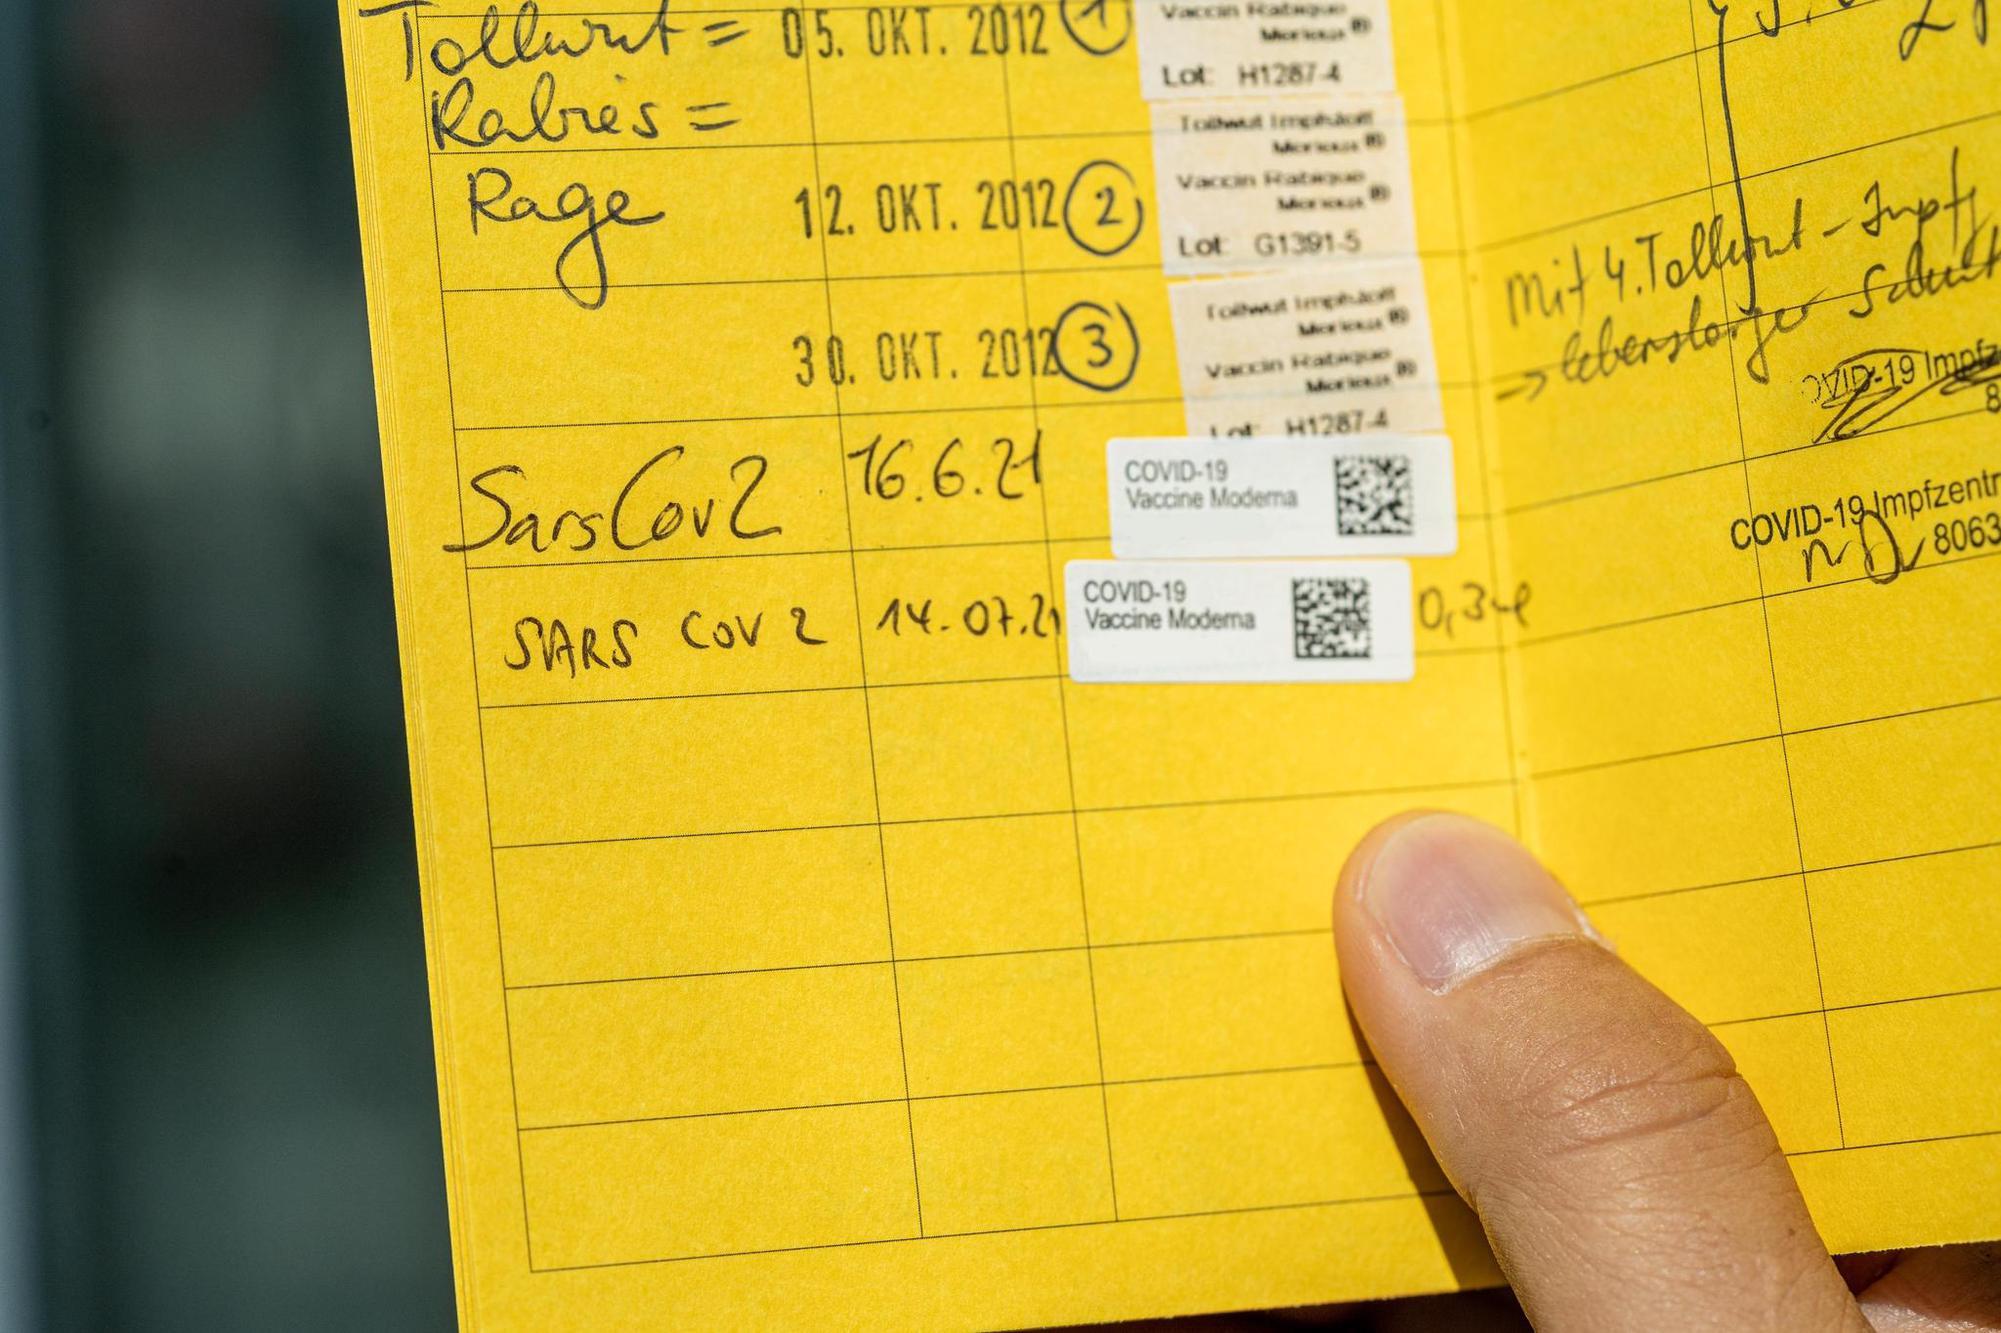 Tollwut = 05. OKT. 2012 1 Vaccin Rabique
Merieux®
Lot: H1287-4
Rabies =
Tollwut Impfstoff
Merieux®
Rage 12. OKT. 2012 2 Vaccin Rabique
Merieux®
Lot: G1391-5
Mit 4. Tollwut-Impf
→ lebenslanger Schutz
Tollwut Impfstoff
Merieux®
30. OKT. 2012 3 Vaccin Rabique
Merieux®
Lot: H1287-4
COVID-19 Impfz
8
SarsCov2 16.6.21 COVID-19
Vaccine Moderna
COVID-19 Impfzentr
8063
SARS COV 2 14.07.21 COVID-19
Vaccine Moderna